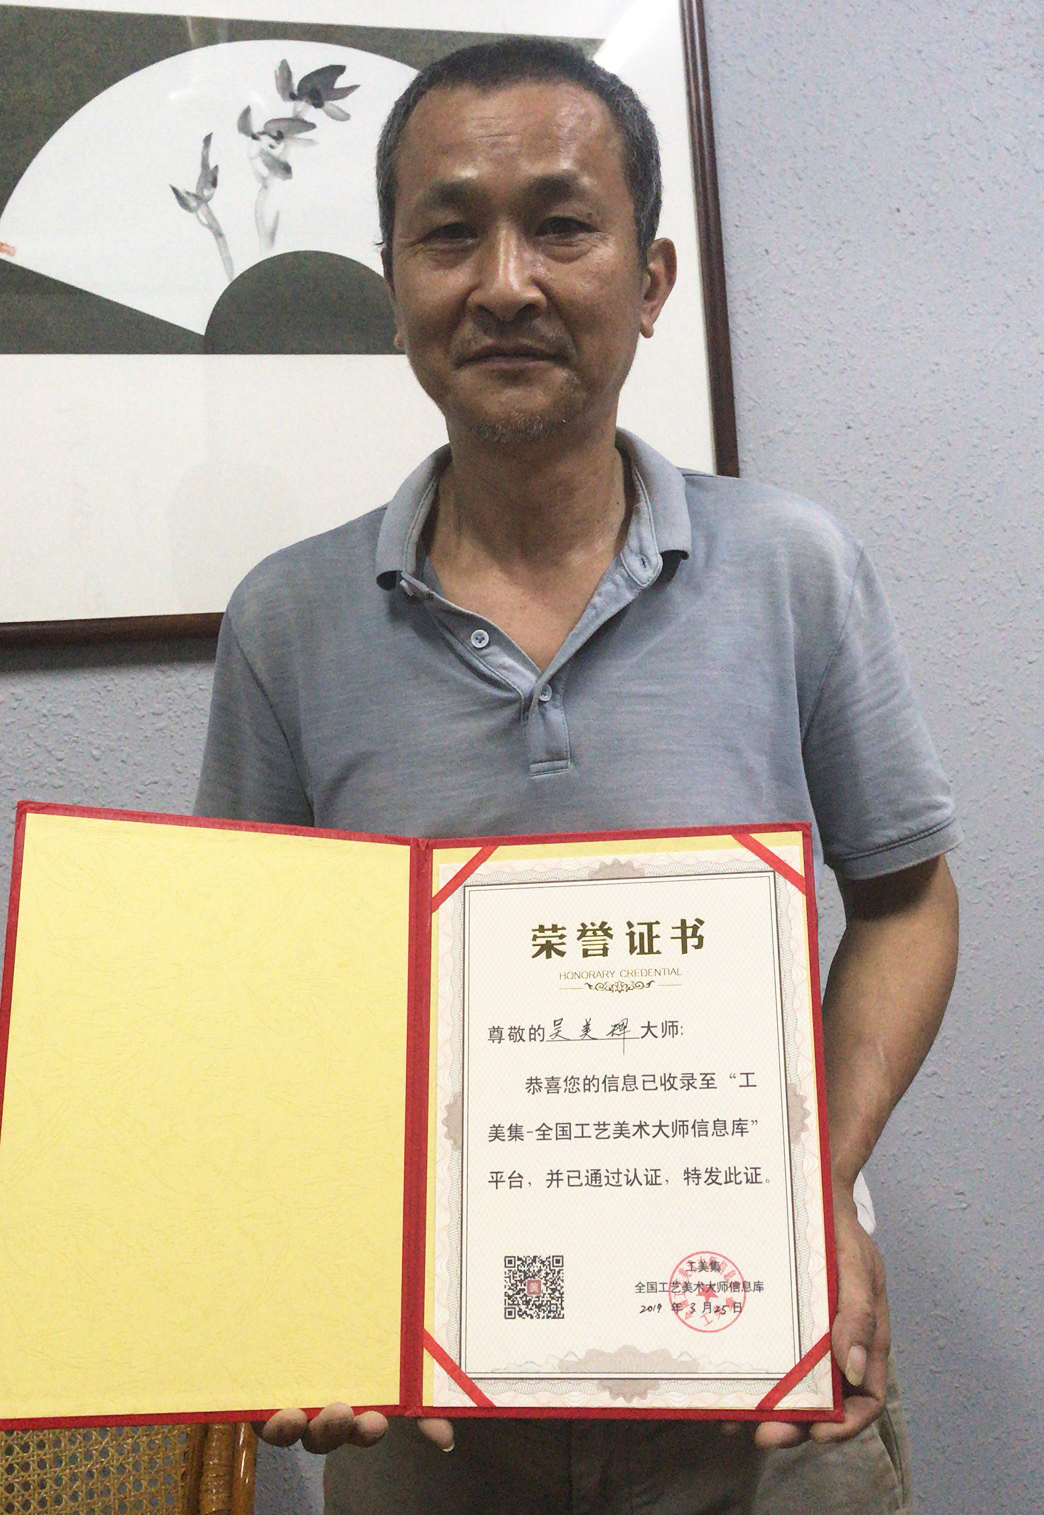 荣誉证书
HONORARY CREDENTIAL
尊敬的吴美碑大师:
恭喜您的信息已收录至“工
美集-全国工艺美术大师信息库”
平台，并已通过认证，特发此证。
工美集
全国工艺美术大师信息库
2019 年 3 月 25 日